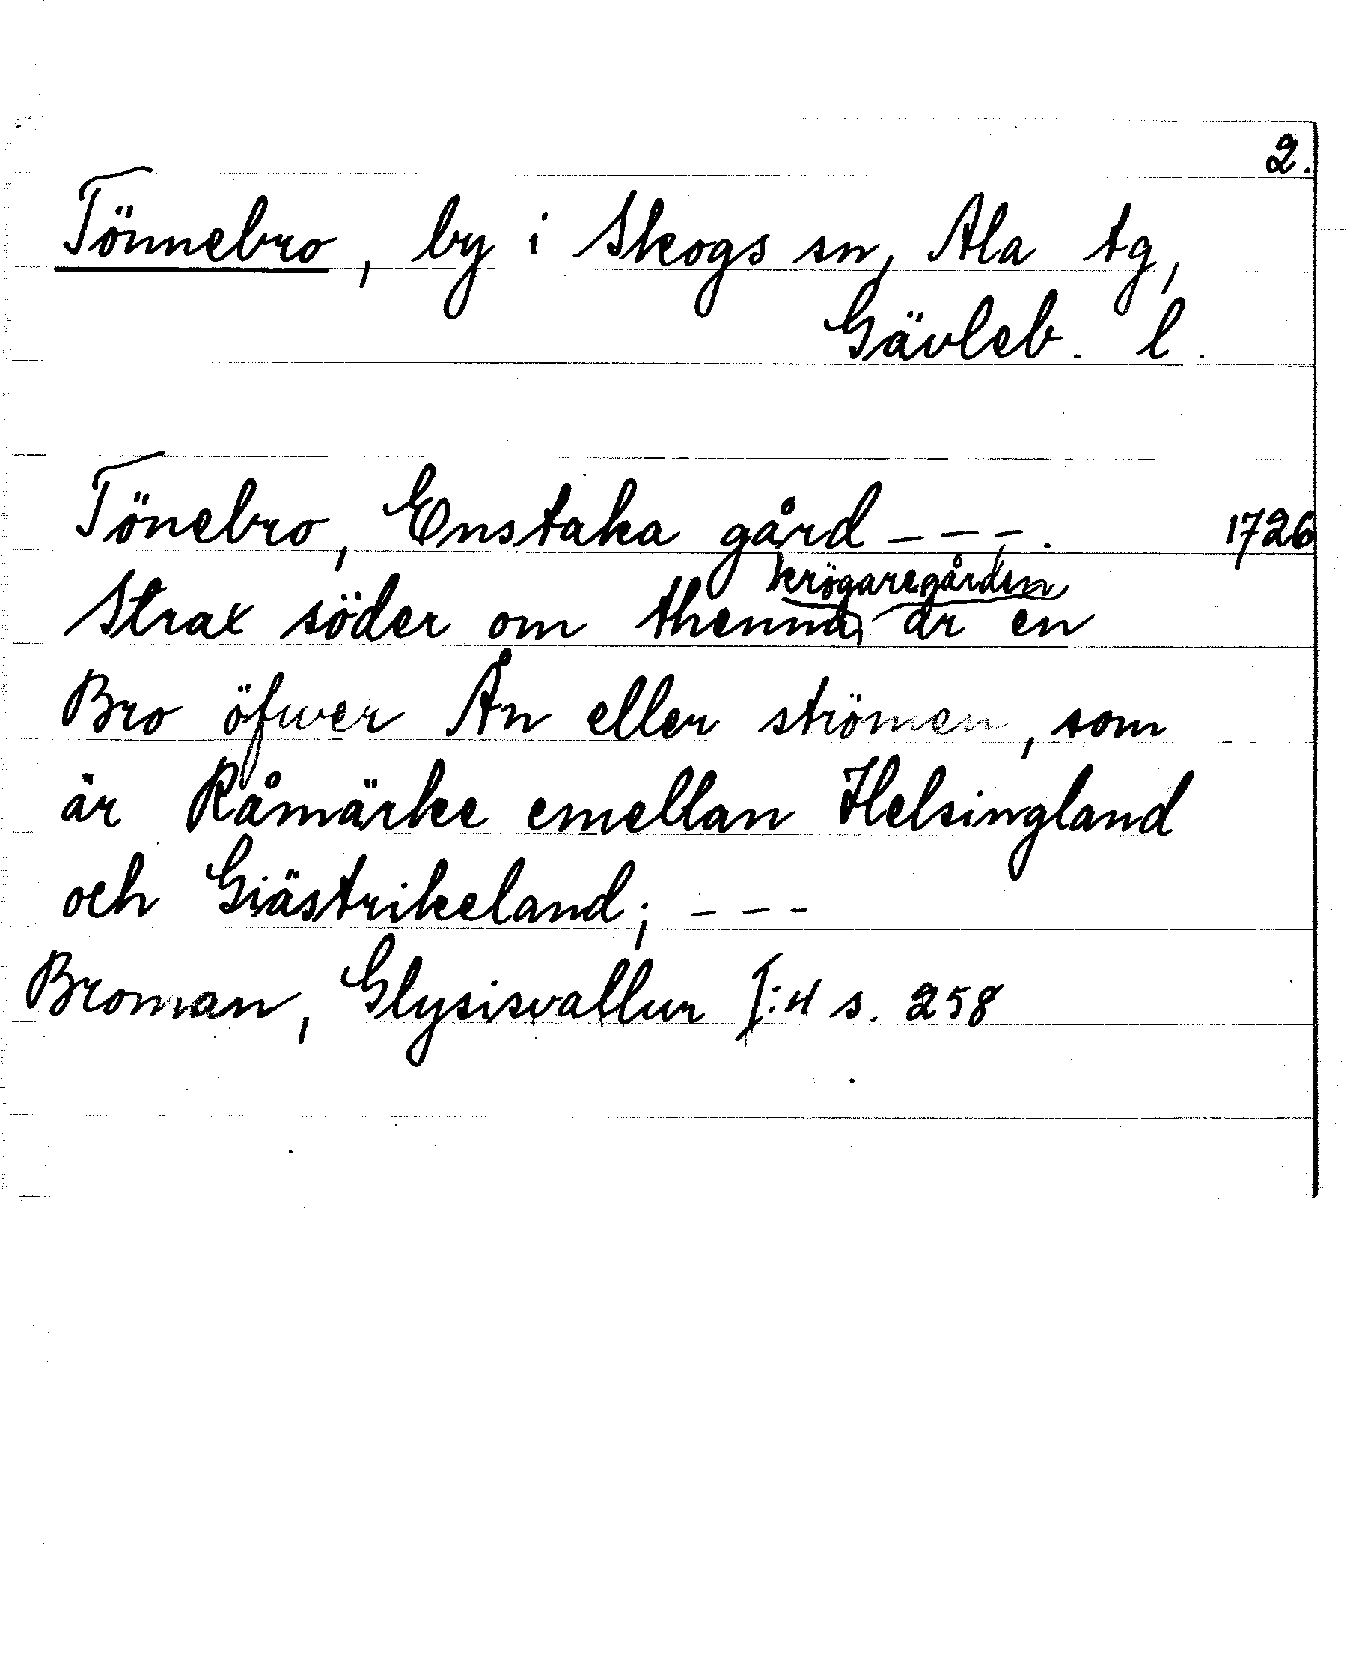 2.
Tönnebro, by i Skogs sn, Ala tg,
Gävleb. l.
Tönebro, Enstaka gård – – –. 1726
krögaregården
Strax söder om thenna är en
Bro öfwer Ån eller strömen, som
är Råmärke emellan Helsingland
och Giästrikeland; – – –
Broman, Glysisvallur I:4 s. 258